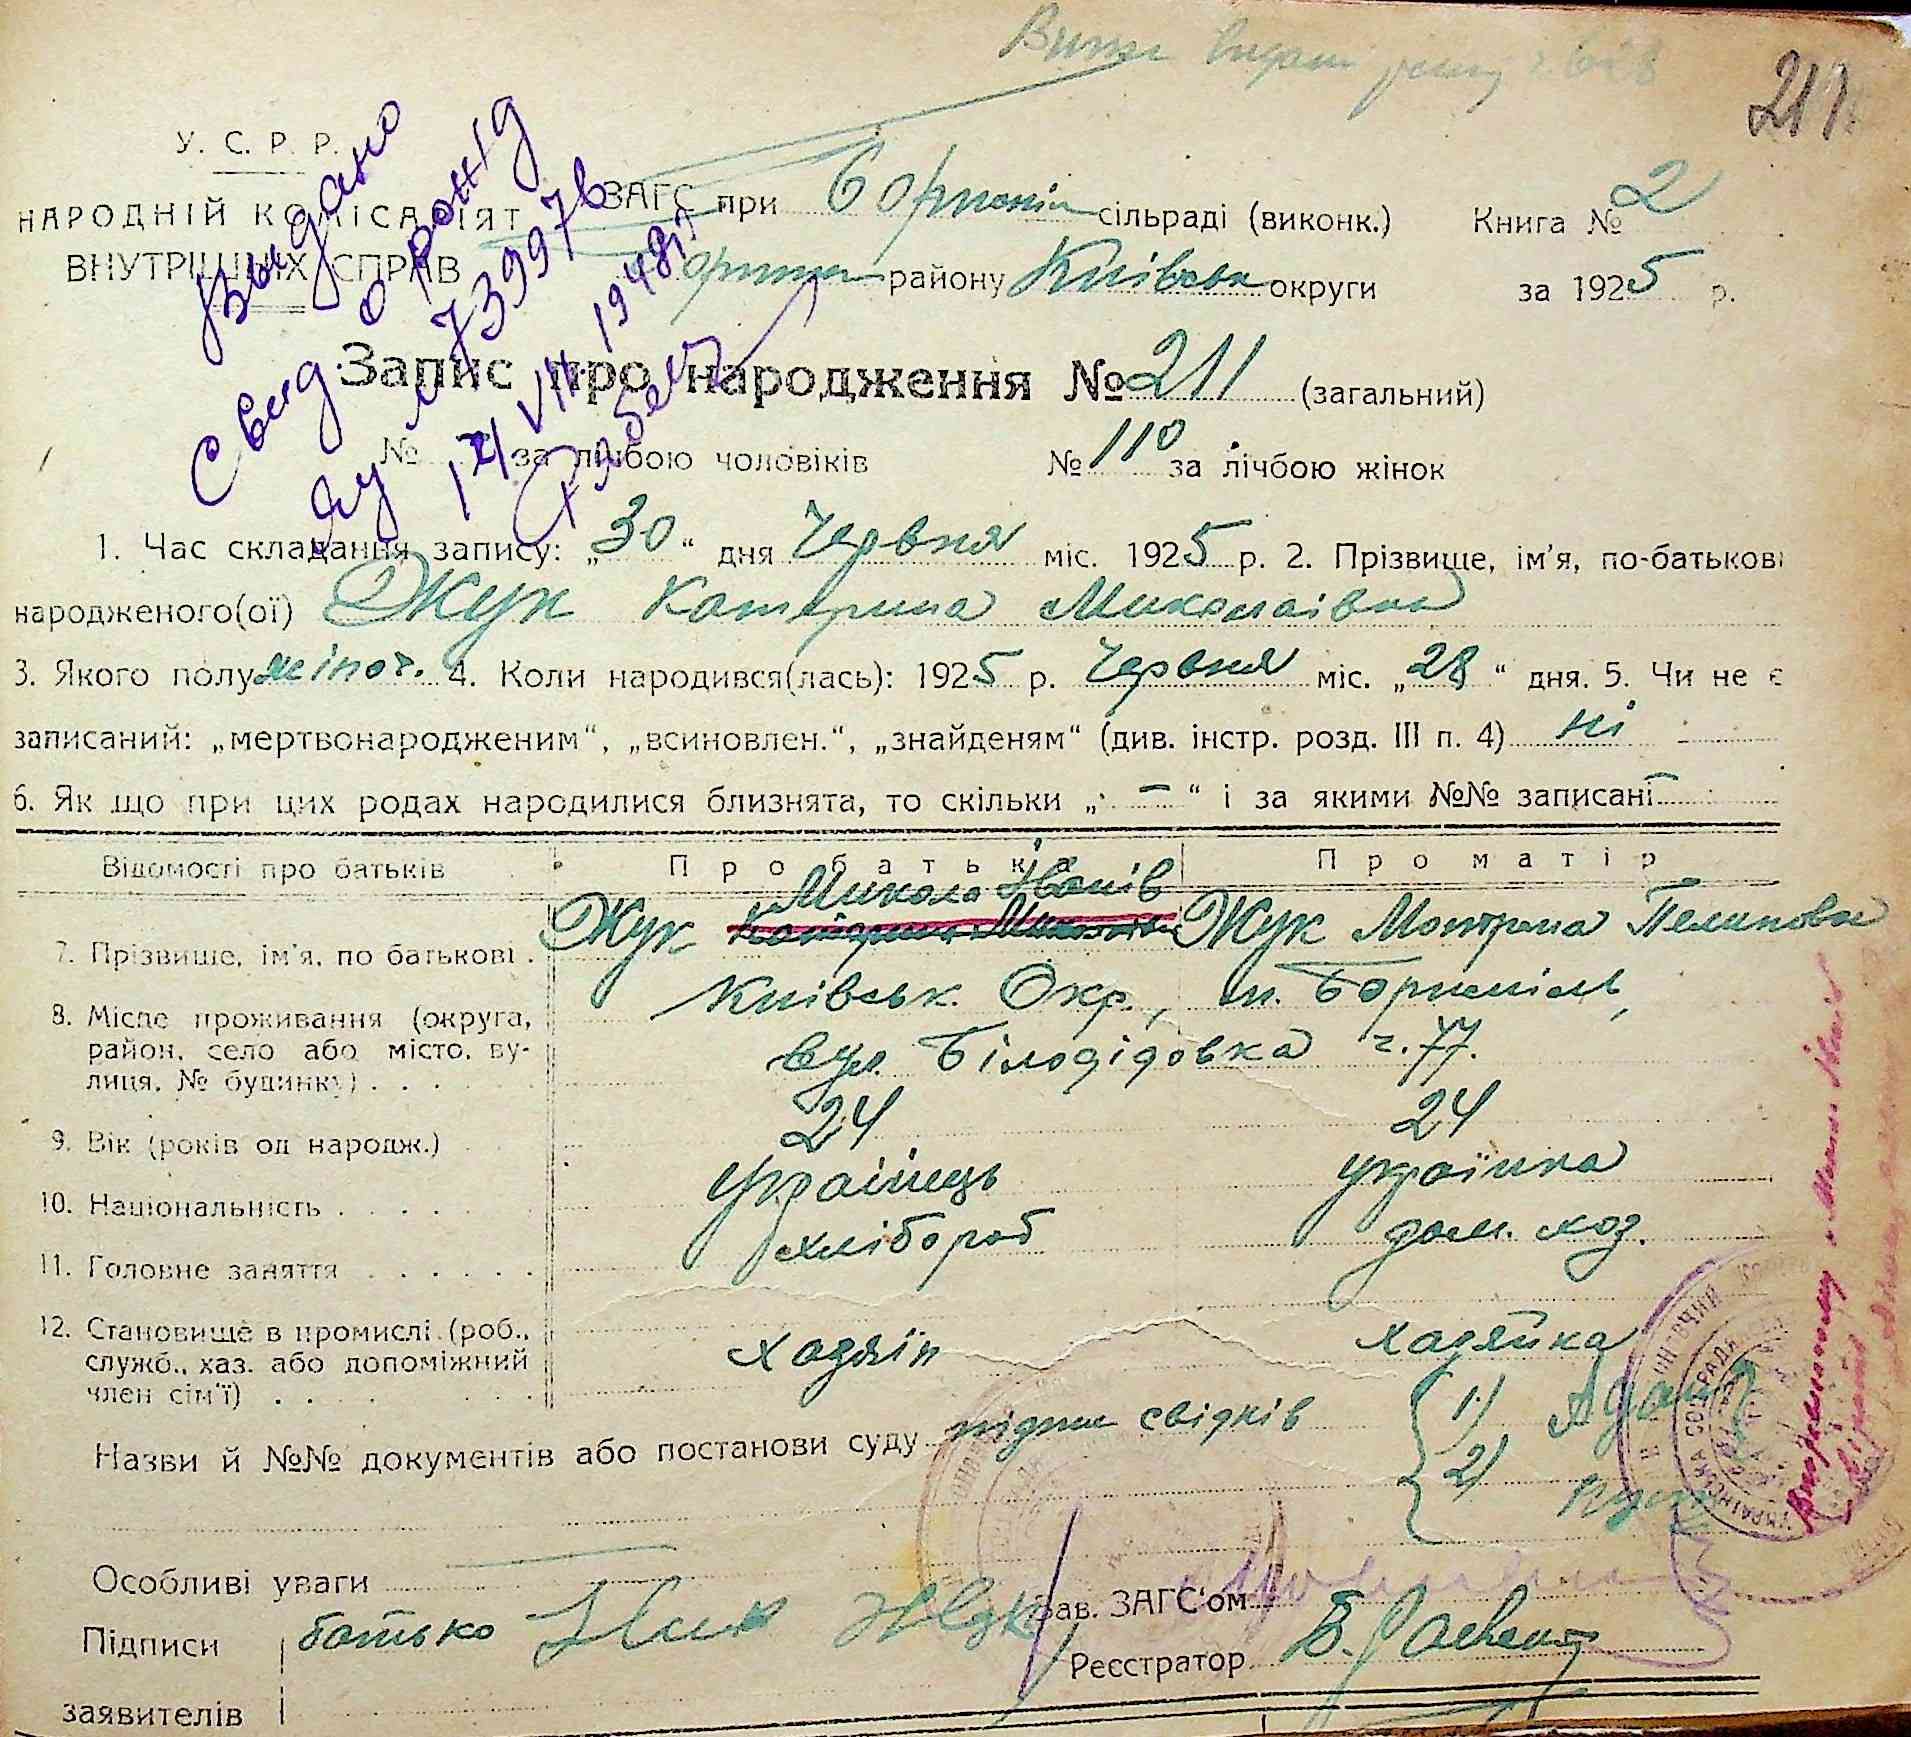 211
У. С. Р. Р.
НАРОДНІЙ КОМІСАРІЯТ
ВНУТРІШНІХ СПРАВ
ЗАГС при сільраді (виконк.)
району Київськ округи
Книга № 2
за 1925 р.
Выдано
Свид о рожд
739976
14 VII 1948 г
Запис про народження № 211 (загальний)
№ — за лічбою чоловіків № 110 за лічбою жінок
1. Час складання запису: „30“ дня Червня міс. 1925 р. 2. Прізвище, ім'я, по-батькові
народженого(ої) Жук Катерина Миколаівна
3. Якого полу жіноч. 4. Коли народився(лась): 1925 р. Червня міс. „28“ дня. 5. Чи не є
записаний: „мертвонародженим“, „всиновлен.“, „знайденям“ (див. інстр. розд. III п. 4) ні
6. Як що при цих родах народилися близнята, то скільки „—“ і за якими №№ записані —
Відомості про батьків Про батька Про матір
Микола Іванів
7. Прізвище, ім'я, по батькові . Жук Жук Мотрина
8. Місце проживання (округа, Київськ. Окр., м. Бориспіль,
район, село або місто, ву- вул. Білодідовка ч. 77.
лиця, № будинку) . . .
9. Вік (років од народж.) 24 24
10. Національність . . . . Українець українка
11. Головне заняття . . . . . . хлібороб дом. хоз.
12. Становище в промислі (роб., хазяїн хазяйка
служб., хаз. або допоміжний
член сім'ї) . . .
Назви й №№ документів або постанови суду підпис свідків 1)
2)
Особливі уваги
Зав. ЗАГС'ом
Підписи батько
Реєстратор
заявителів